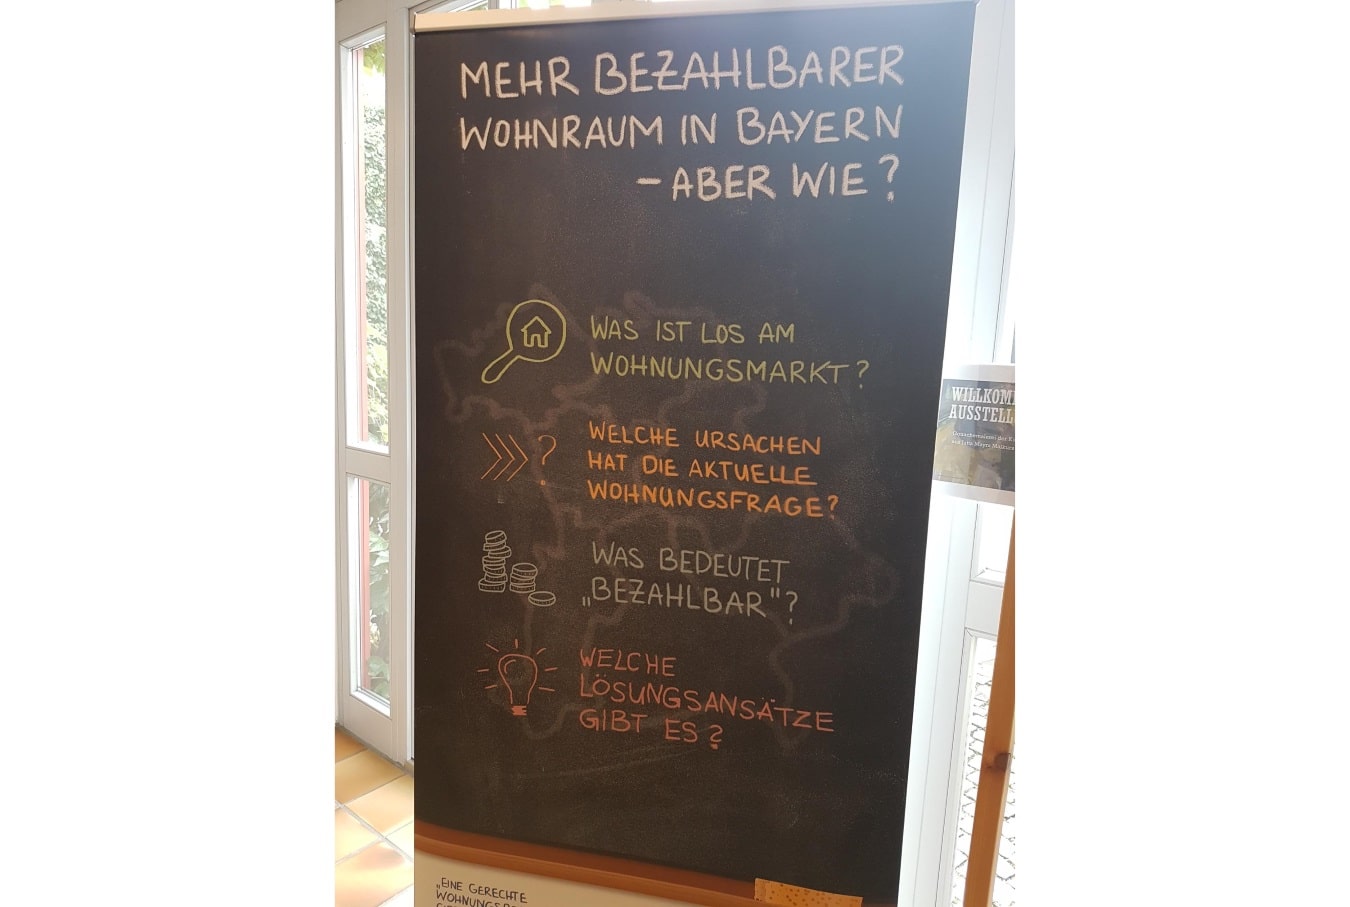 MEHR BEZAHLBARER
WOHNRAUM IN BAYERN
– ABER WIE?
WAS IST LOS AM
WOHNUNGSMARKT?
WELCHE URSACHEN
HAT DIE AKTUELLE
WOHNUNGSFRAGE?
WAS BEDEUTET
„BEZAHLBAR"?
WELCHE
LÖSUNGSANSÄTZE
GIBT ES?
WILLKOM
AUSSTELL
„EINE GERECHTE